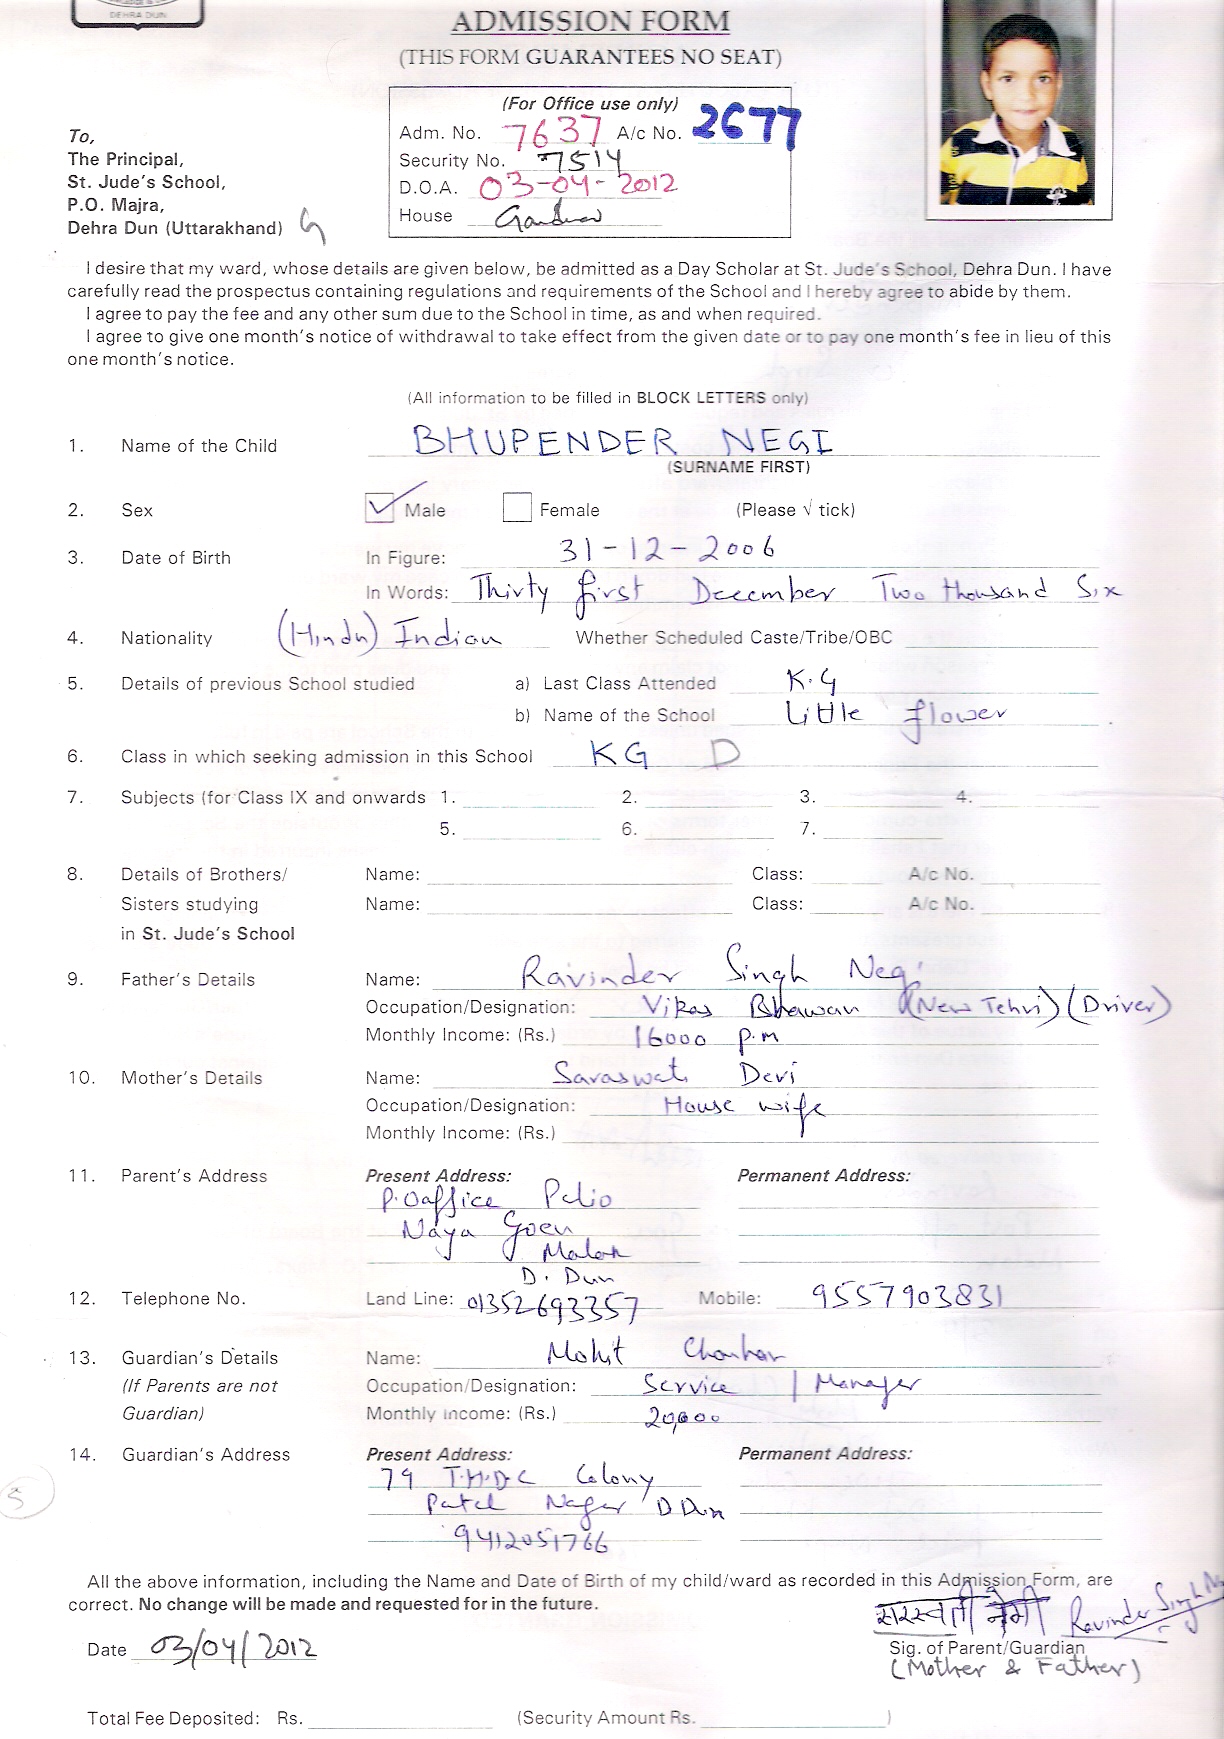 DEHRA DUN
ADMISSION FORM
(THIS FORM GUARANTEES NO SEAT)
(For Office use only)
Adm. No. 7637 A/c No. 2677
Security No. 7514
D.O.A. 03-04-2012
House
To,
The Principal,
St. Jude's School,
P.O. Majra,
Dehra Dun (Uttarakhand)
I desire that my ward, whose details are given below, be admitted as a Day Scholar at St. Jude's School, Dehra Dun. I have
carefully read the prospectus containing regulations and requirements of the School and I hereby agree to abide by them.
I agree to pay the fee and any other sum due to the School in time, as and when required.
I agree to give one month's notice of withdrawal to take effect from the given date or to pay one month's fee in lieu of this
one month's notice.
(All information to be filled in BLOCK LETTERS only)
1. Name of the Child BHUPENDER NEGI
(SURNAME FIRST)
2. Sex Male Female (Please √ tick)
3. Date of Birth In Figure: 31-12-2006
In Words: Thirty first December Two thousand Six
4. Nationality (Hindu) Indian Whether Scheduled Caste/Tribe/OBC
5. Details of previous School studied a) Last Class Attended K.G
b) Name of the School Little flower
6. Class in which seeking admission in this School KG D
7. Subjects (for Class IX and onwards 1. 2. 3. 4.
5. 6. 7.
8. Details of Brothers/ Name: Class: A/c No.
Sisters studying Name: Class: A/c No.
in St. Jude's School
9. Father's Details Name: Ravinder Singh Negi
Occupation/Designation: Vikas Bhawan (New Tehri) (Driver)
Monthly Income: (Rs.) 16000 p.m
10. Mother's Details Name: Saraswati Devi
Occupation/Designation: House wife
Monthly Income: (Rs.)
11. Parent's Address Present Address: Permanent Address:
P.Oaffice Pelio
Naya Goen
D. Dun
12. Telephone No. Land Line: 01352693357 Mobile: 9557903831
13. Guardian's Details Name: Mohit Chauhan
(If Parents are not Occupation/Designation: Service / Manager
Guardian) Monthly Income: (Rs.) 20,000
14. Guardian's Address Present Address: Permanent Address:
79 T.H.D.C Colony
Patel Nagar D Dun
9412051766
5
All the above information, including the Name and Date of Birth of my child/ward as recorded in this Admission Form, are
correct. No change will be made and requested for in the future.
सरस्वती नेगी Ravinder Singh
Date 03/04/2012 Sig. of Parent/Guardian
(Mother & Father)
Total Fee Deposited: Rs. (Security Amount Rs. )